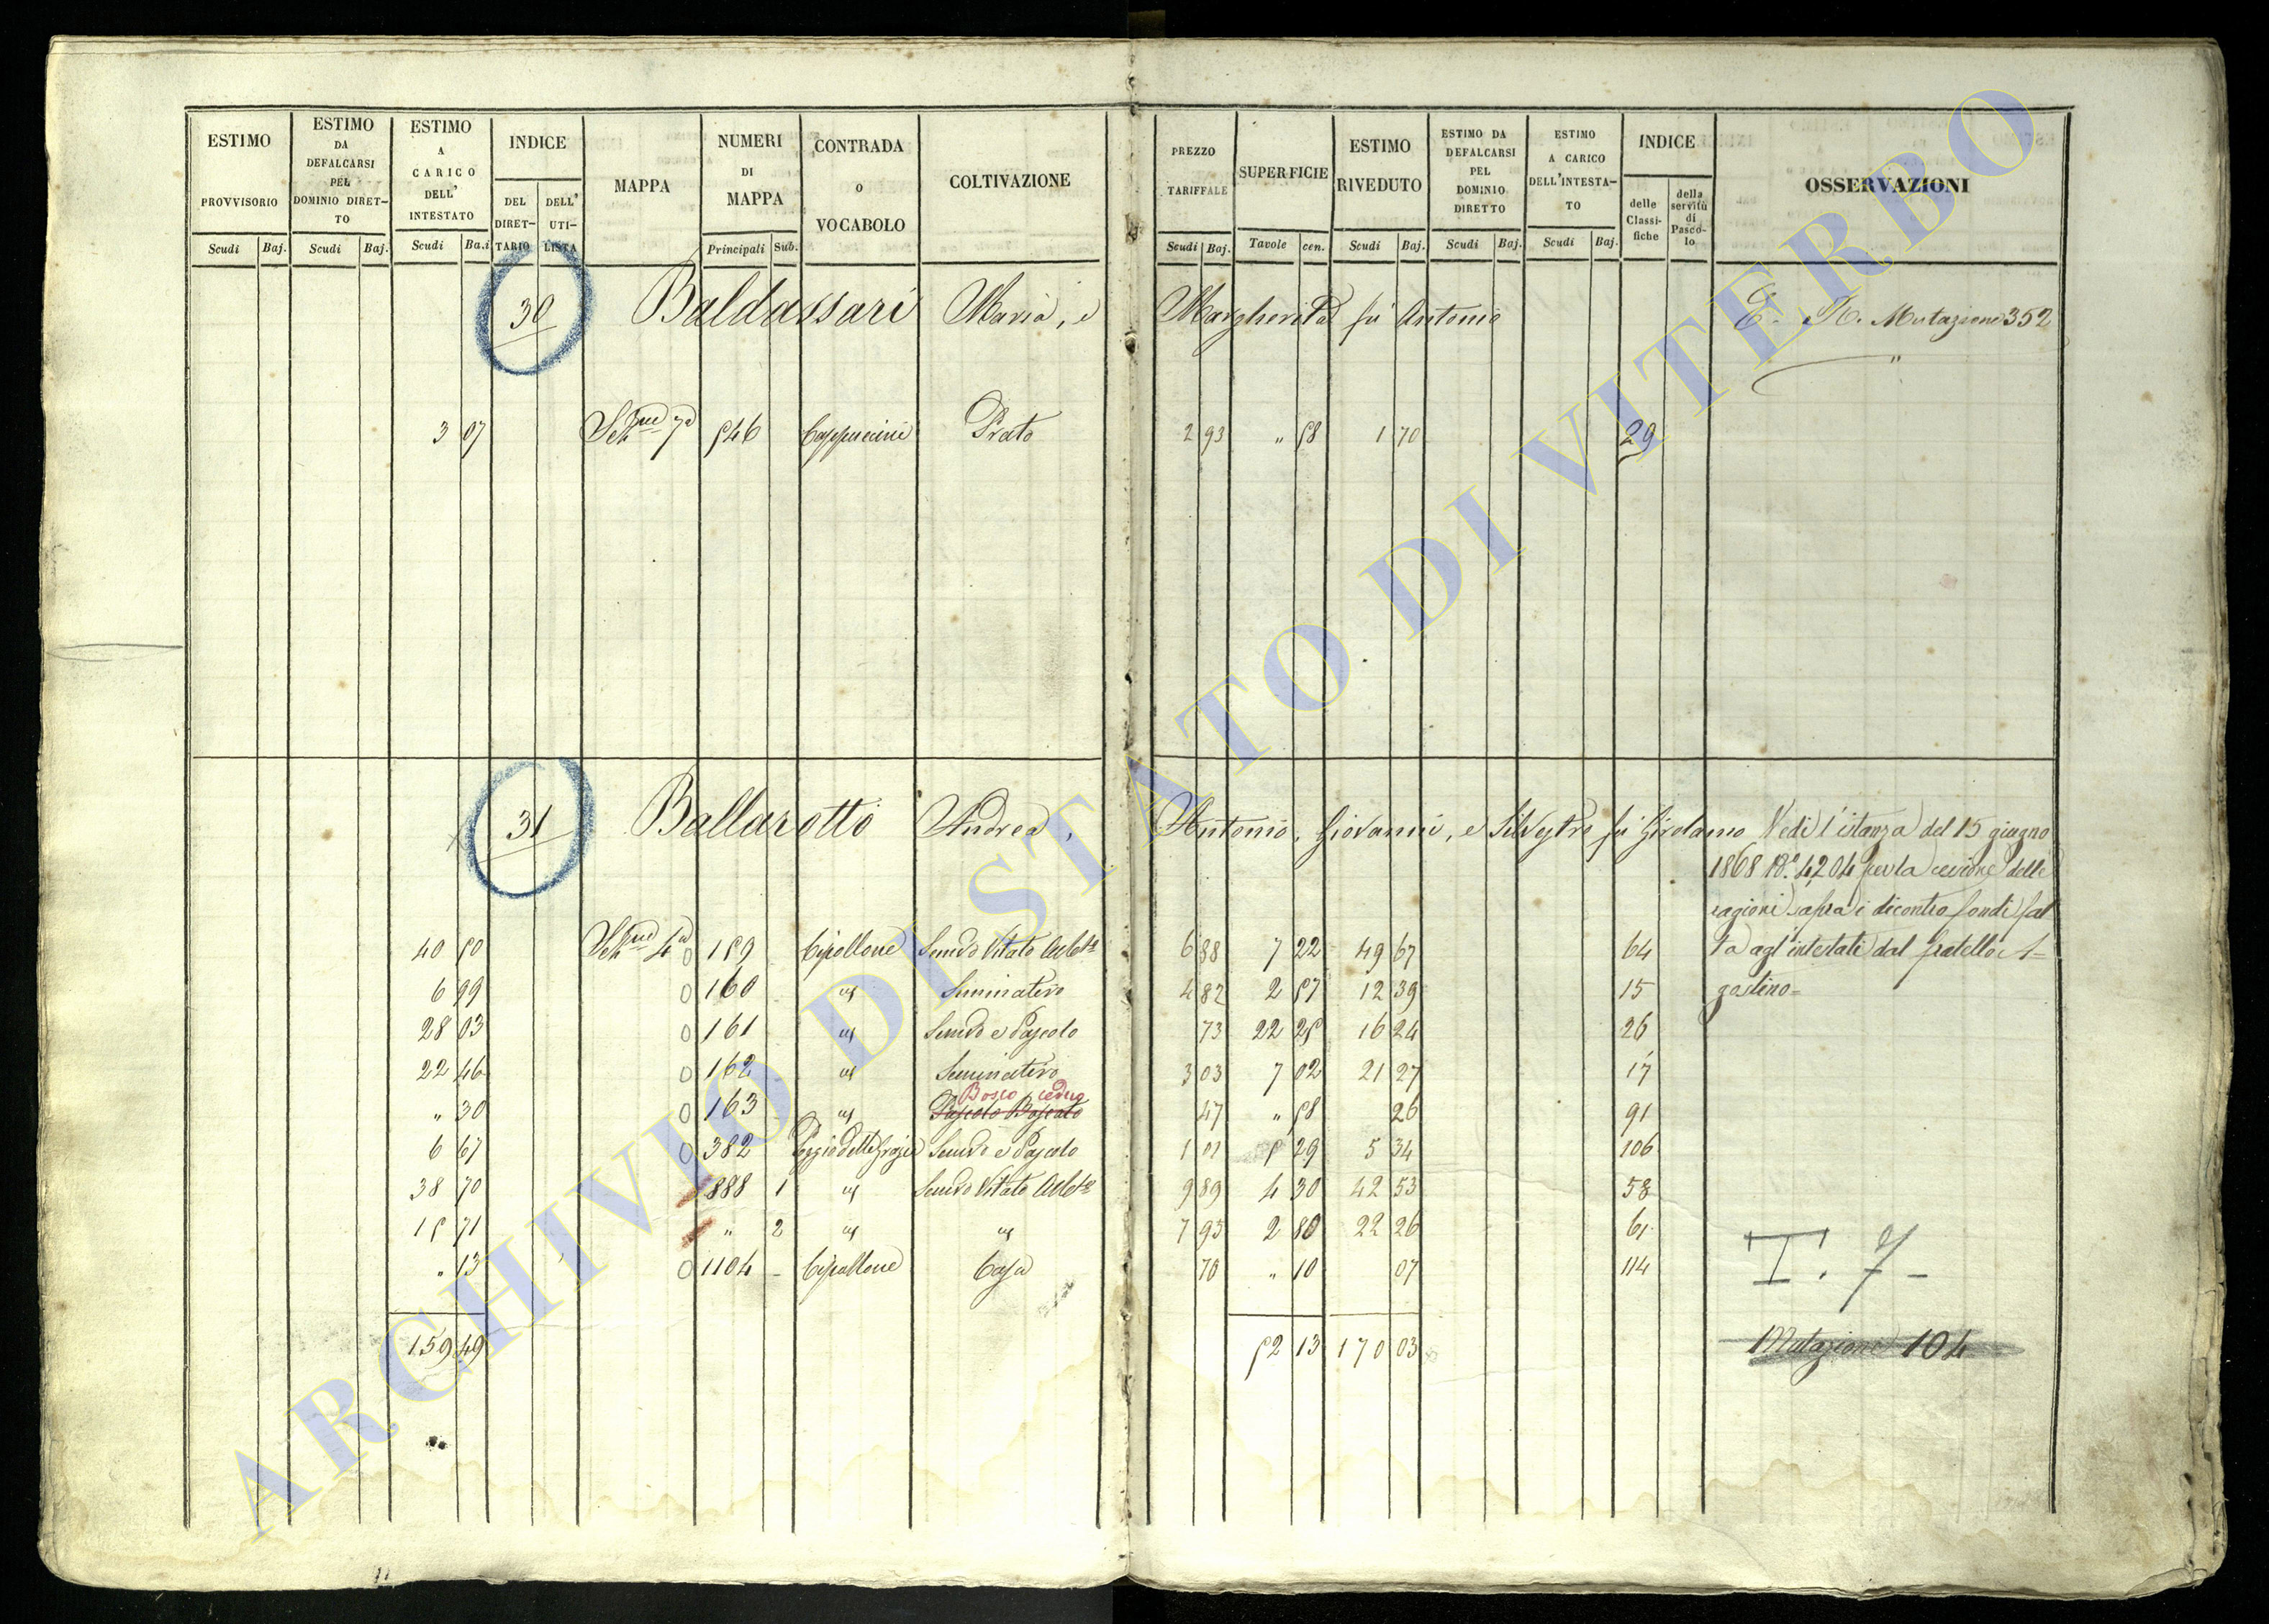 ESTIMO PROVVISORIO Scudi Baj.
ESTIMO DA DEFALCARSI PEL DOMINIO DIRETTO Scudi Baj.
ESTIMO A CARICO DELL' INTESTATO Scudi Ba.i
INDICE DEL DIRETTARIO DELL' UTILISTA
MAPPA
NUMERI DI MAPPA Principali Sub.
CONTRADA o VOCABOLO
COLTIVAZIONE
PREZZO TARIFFALE Scudi Baj.
SUPERFICIE Tavole cen.
ESTIMO RIVEDUTO Scudi Baj.
ESTIMO DA DEFALCARSI PEL DOMINIO DIRETTO Scudi Baj.
ESTIMO A CARICO DELL'INTESTATO Scudi Baj.
INDICE delle Classifiche della servitù di Pascolo
OSSERVAZIONI
30 Baldassari Maria, e Margherita fu Antonio Mutazione 352
3 07 Sez.ne 7a 546 Cappuccini Prato 2 93 " 58 1 70 29
31 Ballarotti Andrea, Antonio, Giovanni, e Silvestro fu Girolamo Vedi l'istanza del 15 giugno
1868 N.° 4204 per la cessione delle
ragioni sopra i dicontro fondi fat
ta agl'intestati dal fratello A=
gostino=
40 50 Sez.ne 4a 0 159 Cipollone Semvo Vitato Arbto 6 88 7 22 49 67 64
6 99 0 160 " Seminativo 4 82 2 57 12 39 15
28 03 0 161 " Semvo e Pascolo 73 22 25 16 24 26
22 46 0 162 " Seminativo 3 03 7 02 21 27 17
" 30 0 163 " Pascolo Boscato Bosco ceduo 47 " 58 26 91
6 67 0 382 Poggio delle Grazie Semvo e Pascolo 1 01 5 29 5 34 106
38 70 888 1 " Semvo Vitato Arbto 9 89 4 30 42 53 58
15 71 " 2 " " 7 95 2 80 22 26 61
" 13 0 1104 Cipollone Casa 70 " 10 07 114
T. 7
159 49 52 13 170 03
Mutazione 104
ARCHIVIO DI STATO DI VITERBO